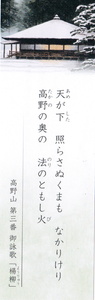 天が下 照らさぬくまも なかりけり
高野の奥の 法のともし火
高野山 第三番 御詠歌「楊柳」